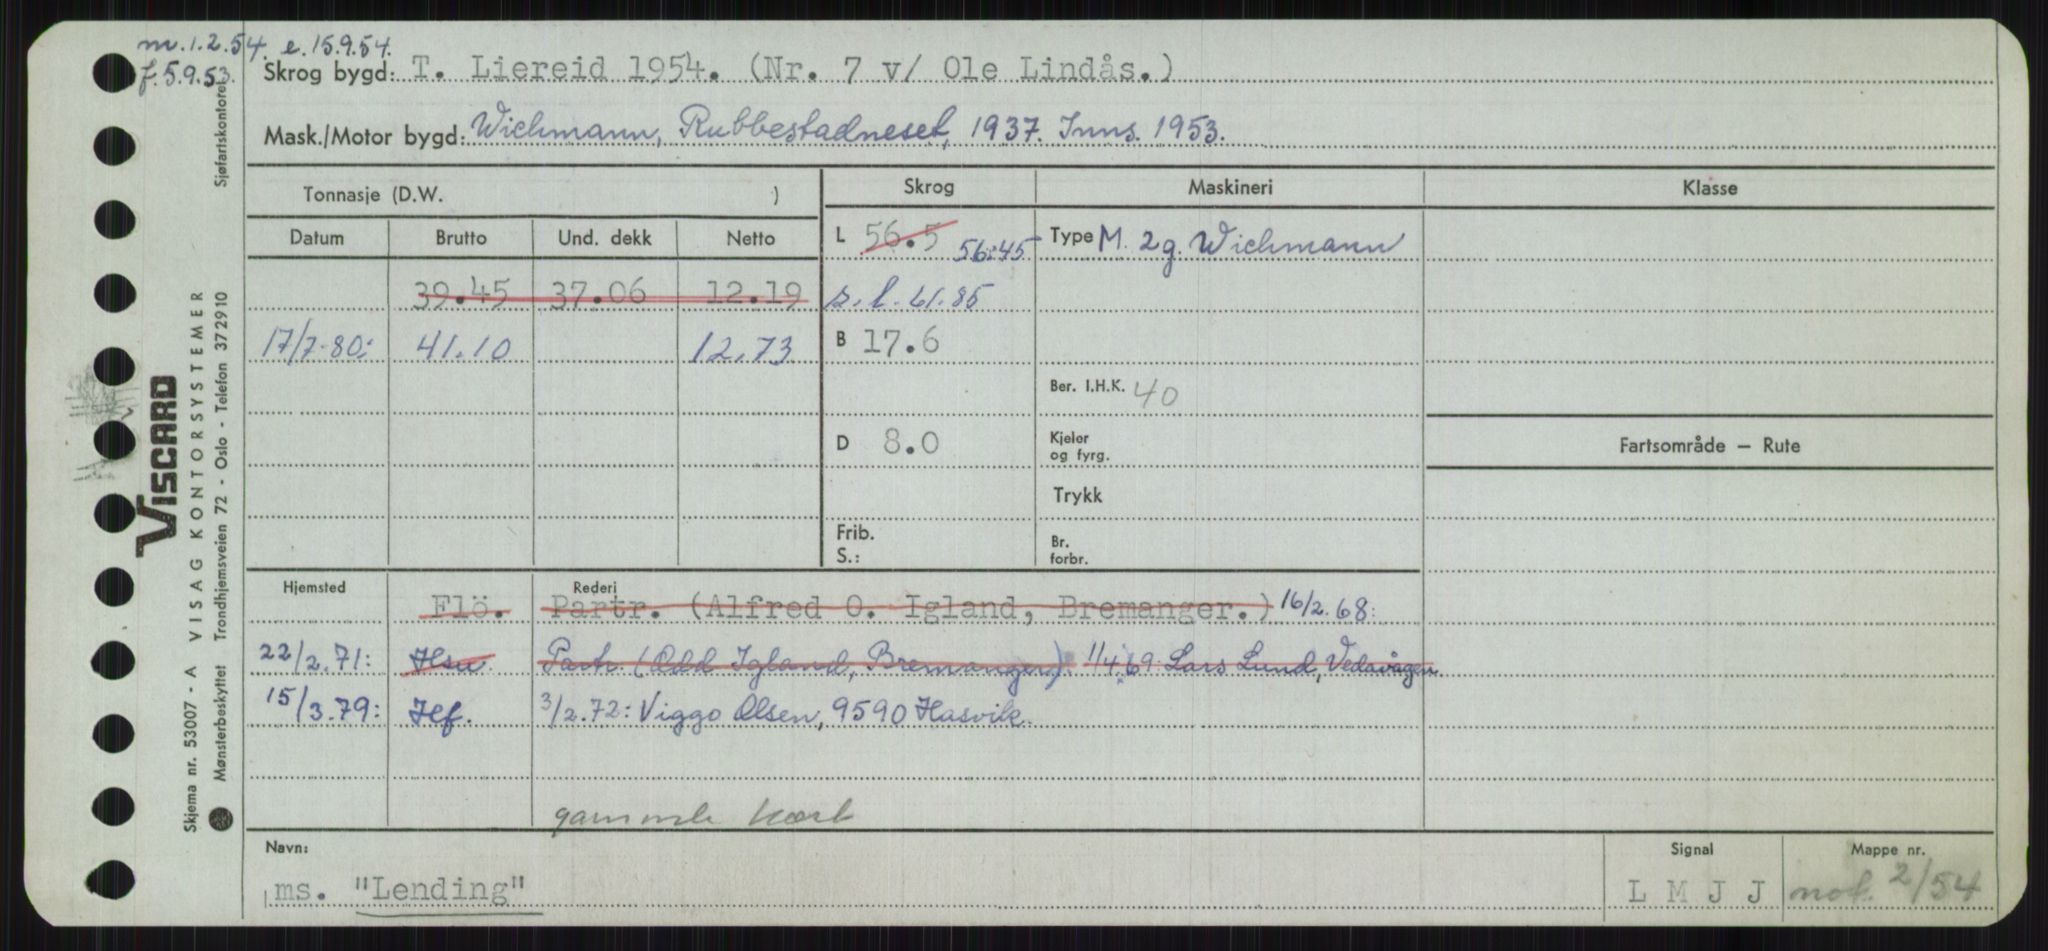 m. 1.2.54. e. 15.9.54.
f. 5.9.53.
Skrog bygd: T. Liereid 1954. (Nr. 7 v/ Ole Lindås.)
Mask./Motor bygd: Wichmann, Rubbestadneset, 1937. Inns. 1953.
Tonnasje (D.W. )
Skrog
Maskineri
Klasse
Datum Brutto Und. dekk Netto
L 56.5 56.45
Type M. 2 g. Wichmann
39.45 37.06 12.19
r. l. 61.85
17/7.80: 41.10 12.73
B 17.6
Ber. I.H.K. 40
D 8.0
Kjeler
og fyrg.
Fartsområde — Rute
Trykk
Frib.
S.:
Br.
forbr.
Hjemsted
Rederi
Flö. Partr. (Alfred O. Igland, Bremanger.) 16/2.68:
22/2.71: Hsu. Partr. (Odd Igland, Bremanger). 11/4.69: Lars Lund, Vedavågen.
15/3.79: Hf. 3/2.72: Viggo Olsen, 9590 Hasvik.
gammelt kort
Navn:
Signal
Mappe nr.
ms. "Lending"
L M J J
not. 2/54
VISCARD
Skjema nr. 53007 - A VISAG KONTORSYSTEMER
Mønsterbeskyttet Trondhjemsveien 72 - Oslo - Telefon 372910
Sjøfartskontoret